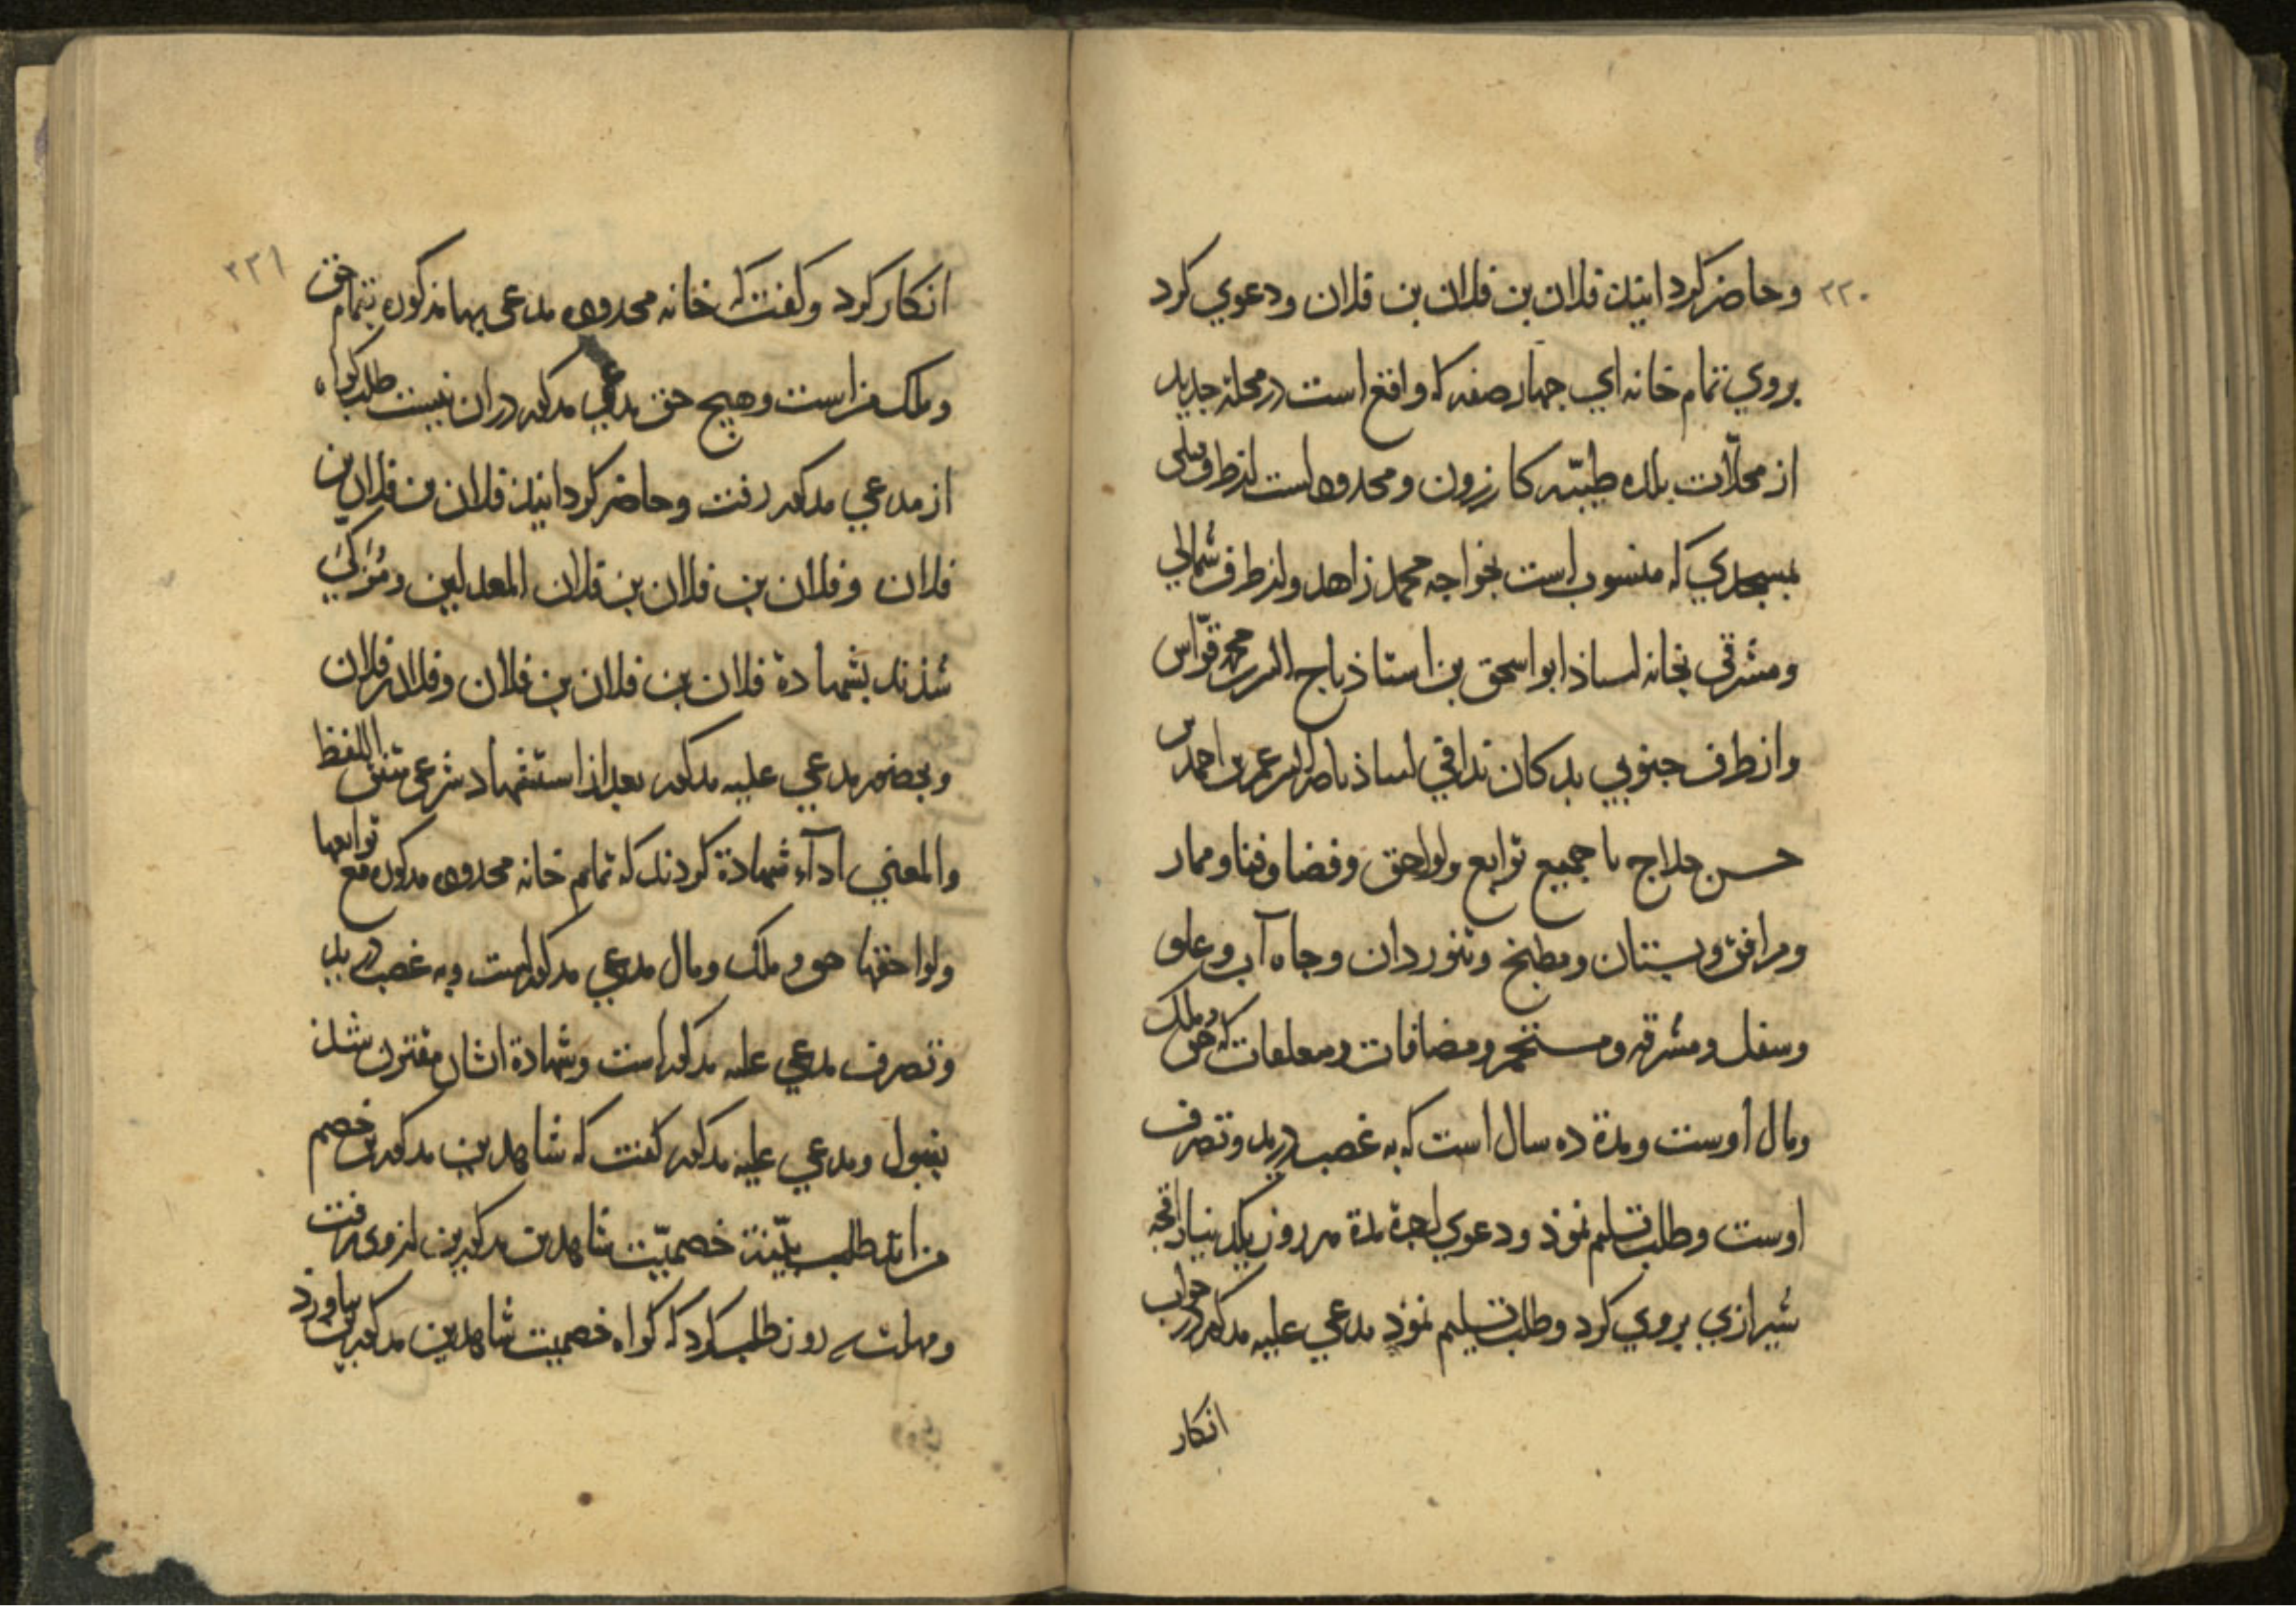 ٢٢٠
وحاضر کردانید فلان بن فلان بن فلان ودعوي کرد
بروي تمام خانه اي جهار صفه که واقع است در محلة جدید
از محلّات بلده طیّبه کازرون ومحدوده است از طرف قبلی
بمسجدي که منسوب است بخواجه محمد زاهد واز طرف شمالي
ومشرقي بخانه استاذ ابو اسحق بن استاذ تاج الدین محمد قوّاس
واز طرف جنوبي بدکان ندافي استاذ ناصر الدین عمر بن احمد بن
حسن حلاج با جمیع توابع ولواحق وفضا وفنا وممار
ومرافق وبستان ومطبخ وتنوردان وجاه آب وعلو
وسفل ومشرقه ومستحم ومضافات ومتعلقات که حق وملک
ومال اوست ومدة ده سال است که به غصب در ید وتصرف
اوست وطلب تسلیم نموذ ودعوي اجرة مدة هر روز بیکدینار اقجه
شیرازي بروي کرد وطلب تسلیم نموذ مدعي علیه مذکور در جواب
انکار
٢٢١
انکار کرد وکفت که خانه محدوده مدعی بها مذکوره بتمام حق
وملک من است وهیج حق مدعي مذکور در ان نیست طلب کواه
از مدعي مذکور رفت وحاضر کردانید فلان بن فلان بن
فلان وفلان بن فلان بن فلان المعدلین ومُزکّي
شذند بشهادة فلان بن فلان بن فلان وفلان بن فلان
وبحضور مدعي علیه مذکور بعد از استشهاد شرعی متفق اللفظ
والمعني ادآء شهادة کردند که تمام خانه محدوده مذکوره مع توابعها
ولواحقها حق وملک ومال مدعي مذکور است وبه غصب در ید
وتصرف مدعي علیه مذکور است وشهادة ایشان مقترن شد
بقبول ومدعي علیه مذکور کفت که شاهدین مذکورین خصم
من اند طلب بیّنة خصمیّت شاهدین مذکورین از وی رفت
ومهلت سه روز طلب کرد که کواه خصمیت شاهدین مذکورین بیاورذ